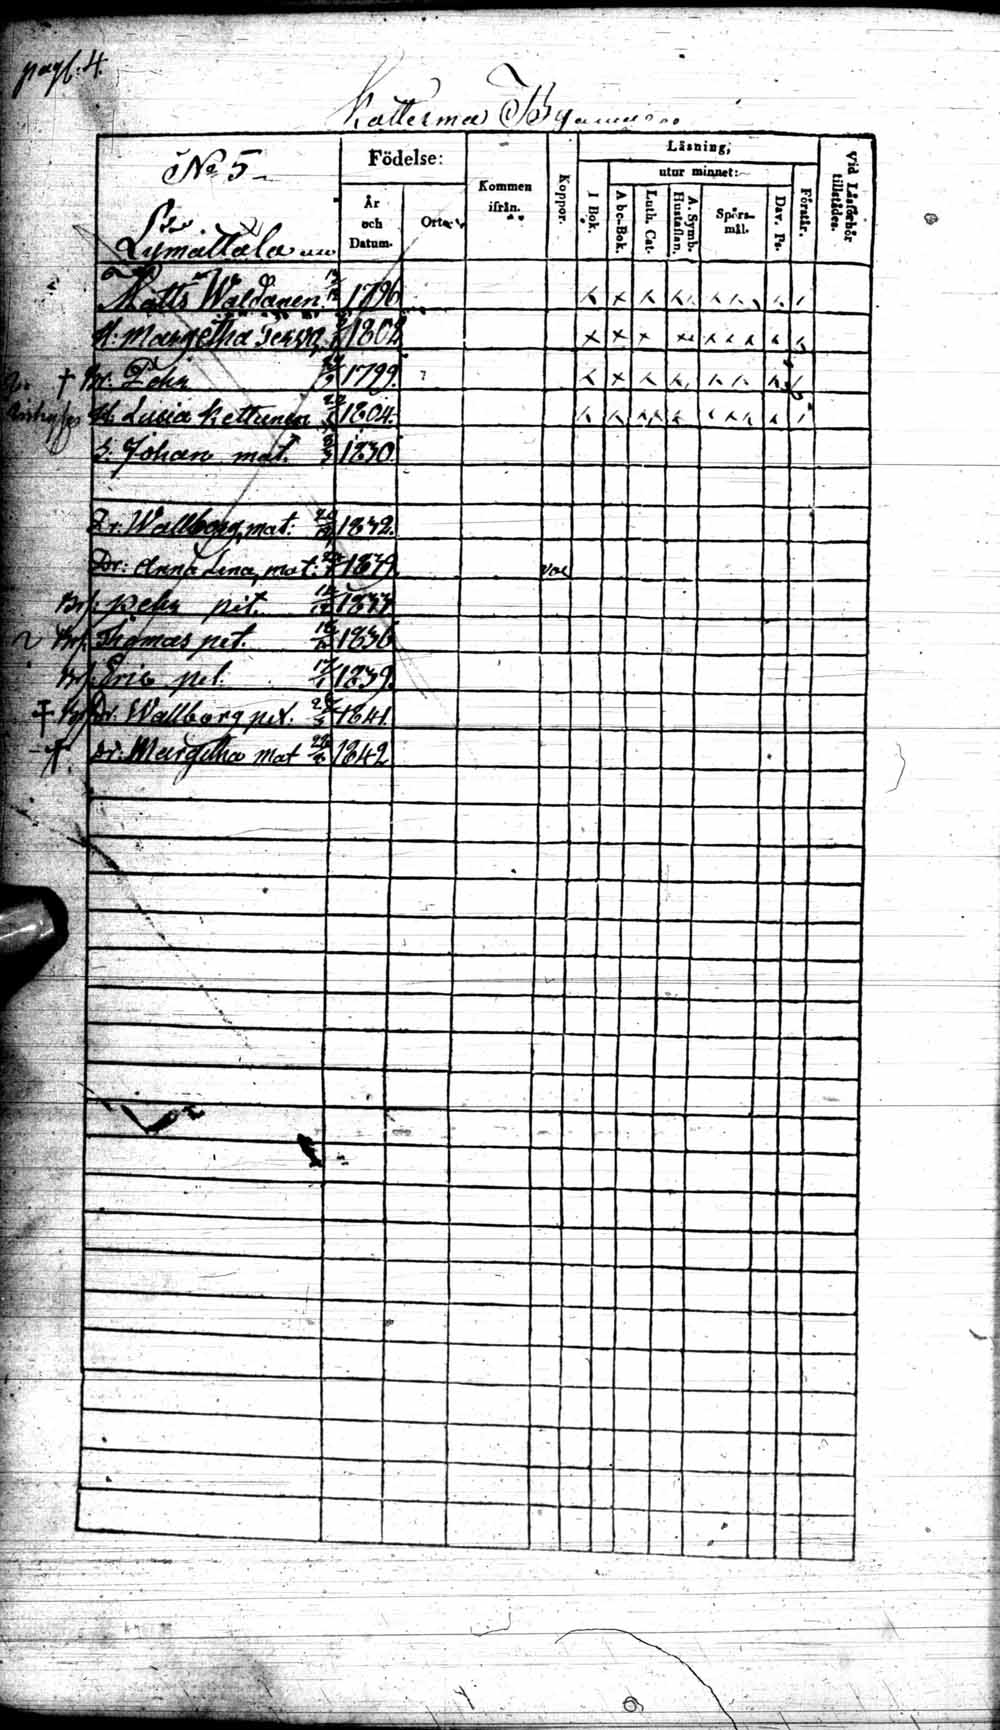 pag. 4.
Katterma By
No 5
Födelse:
År och Datum.
Ort.
Kommen ifrån.
Koppor.
Läsning;
utur minnet:
I Bok.
Abc-Bok.
Luth. Cat.
A. Symb. Hustaflan.
Spörsmål.
Dav. Ps.
Förstår.
Vid Läsförhör tillstädes.
Lymättälä
Matts Waldanen 1796
H: Margetha 1802
† Br. Pehr 1799.
H. Lisia Kettunen 1804.
S: Johan mat. 1830.
Dr: Wallborg, mat: 1832.
Dr: Anna Lena, mat: 1839 vac
Pehr pet.
Thomas pet. 1836
Eric pet. 1839.
† Dr. Wallborg pet. 1841.
†. Dr: Margetha mat 1842